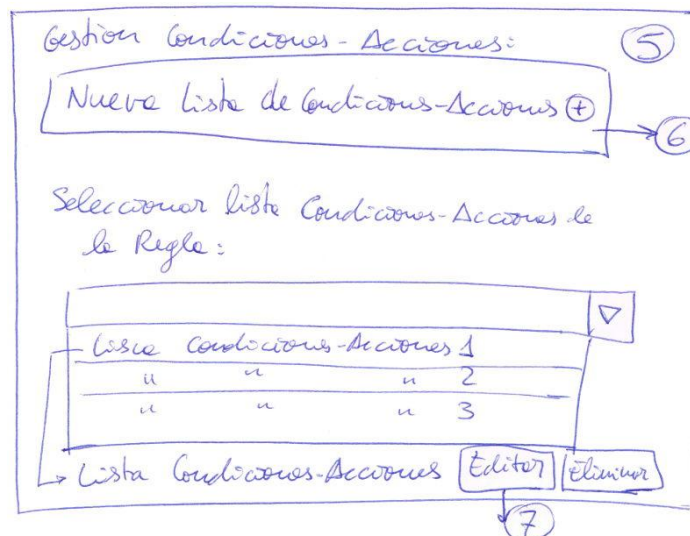 Gestion Condiciones-Acciones:
5
Nueva Lista de Condiciones-Acciones +
6
Seleccionar lista Condiciones-Acciones de
la Regla:
Lista Condiciones-Acciones 1
" " " 2
" " " 3
Lista Condiciones-Acciones Editar Eliminar
7